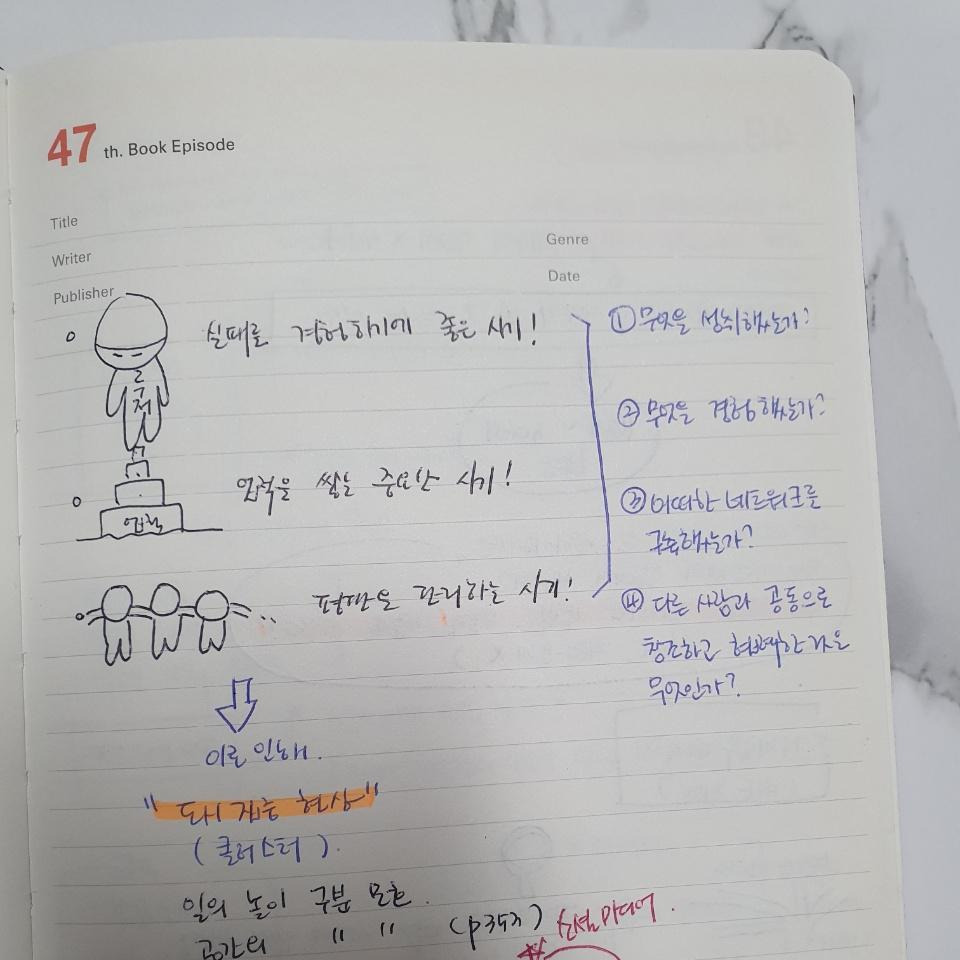 47 th. Book Episode
Title
Writer
Genre
Publisher
Date
실패를 경험하기에 좋은 시기!
루저
업적을 쌓는 중요한 시기!
업적
평판을 관리하는 시기!
① 무엇을 성취했는가?
② 무엇을 경험했는가?
③ 어떠한 네트워크를
구축했는가?
④ 다른 사람과 공동으로
창조하고 협력한 것은
무엇인가?
이로 인해.
"도시 집중 현상"
(클러스터).
일의 놀이 구분 모호.
공간의 " " (p353) 소셜미디어.